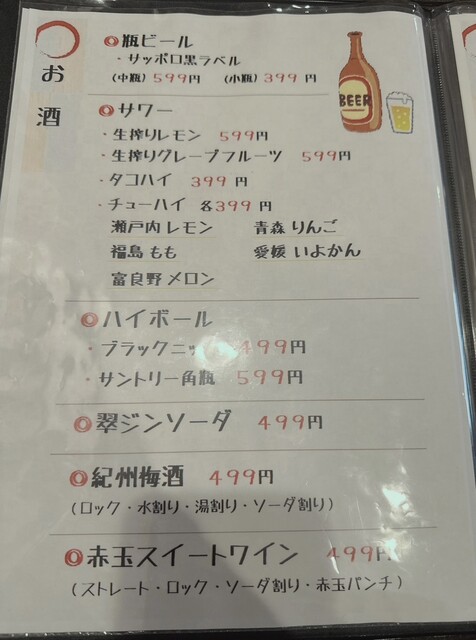 お酒
瓶ビール
・サッポロ黒ラベル
(中瓶) 599円 (小瓶) 399 円
BEER
サワー
・生搾りレモン 599円
・生搾りグレープフルーツ 599円
・タコハイ 399 円
・チューハイ 各399 円
瀬戸内 レモン 青森 りんご
福島 もも 愛媛 いよかん
富良野 メロン
ハイボール
・ブラックニッ 499円
・サントリー角瓶 599円
翠ジンソーダ 499円
紀州梅酒 499円
(ロック・水割り・湯割り・ソーダ割り)
赤玉スイートワイン 499円
(ストレート・ロック・ソーダ割り・赤玉パンチ)